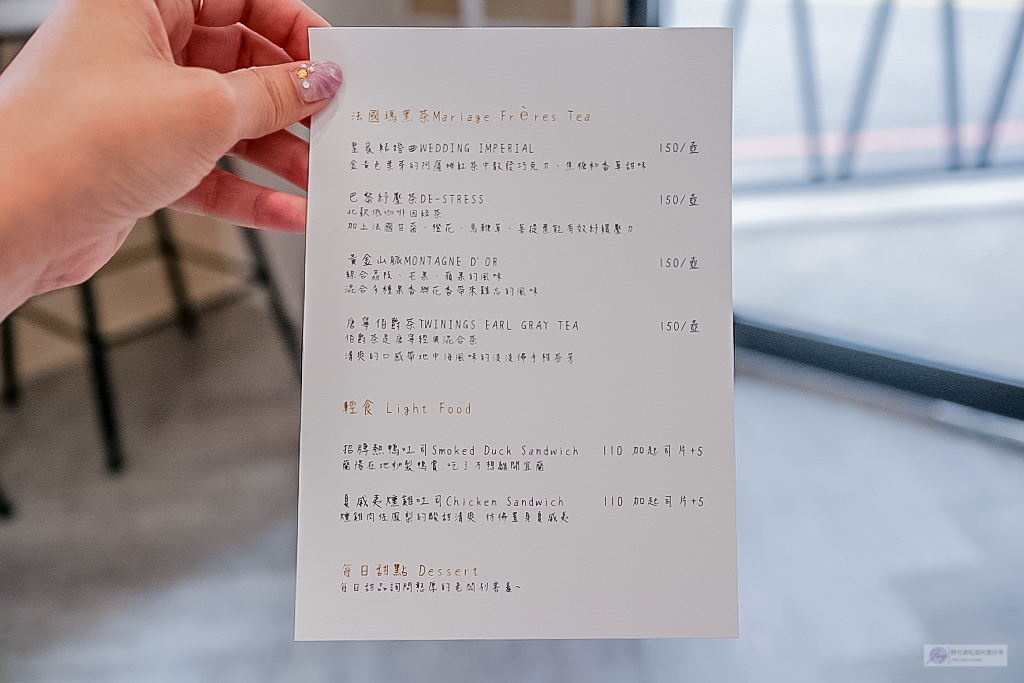 法國瑪黑茶Mariage Frères Tea
皇家結婚曲WEDDING IMPERIAL 150/壺
金黃色葉芽的阿薩姆紅茶中散發巧克力、焦糖和香草甜味
巴黎紓壓茶DE-STRESS 150/壺
此款低咖啡因綠茶
加上法國甘菊、橙花、馬鞭草、菩提葉能有效紓緩壓力
黃金山脈MONTAGNE D'OR 150/壺
綜合荔枝、芒果、蘋果的風味
混合多種果香與花香帶來難忘的風味
唐寧伯爵茶TWININGS EARL GRAY TEA 150/壺
伯爵茶是唐寧經典混合茶
清爽的口感帶地中海風味的淡淡佛手柑芬芳
輕食 Light Food
招牌熱鴨吐司Smoked Duck Sandwich 110 加起司片+5
蘭陽在地秘製鴨賞 吃了不想離開宜蘭
夏威夷燻雞吐司Chicken Sandwich 110 加起司片+5
燻雞肉佐鳳梨的酸甜清爽 彷彿置身夏威夷
每日甜點 Dessert
每日甜品詢問憨厚的老闆別害羞~